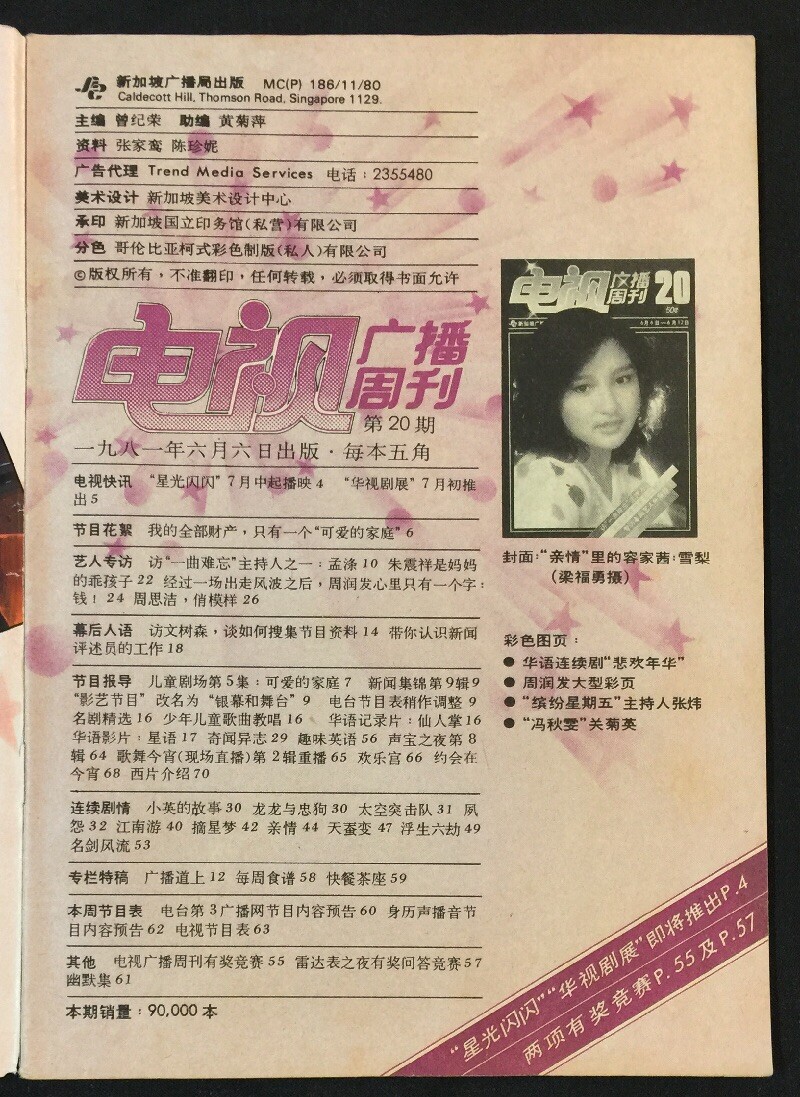 新加坡广播局出版 MC(P) 186/11/80
Caldecott Hill, Thomson Road, Singapore 1129.
主编 曾纪荣 助编 黄菊萍
资料 张家鸾 陈珍妮
广告代理 Trend Media Services 电话:2355480
美术设计 新加坡美术设计中心
承印 新加坡国立印务馆(私营)有限公司
分色 哥伦比亚柯式彩色制版(私人)有限公司
©版权所有,不准翻印,任何转载,必须取得书面允许
电视广播周刊
第20期
一九八一年六月六日出版·每本五角
电视快讯 “星光闪闪”7月中起播映4 “华视剧展”7月初推
出5
节目花絮 我的全部财产,只有一个“可爱的家庭”6
艺人专访 访“一曲难忘”主持人之一:孟涤10 朱震祥是妈妈
的乖孩子22 经过一场出走风波之后,周润发心里只有一个字:
钱!24 周思洁,俏模样26
幕后人语 访文树森,谈如何搜集节目资料14 带你认识新闻
评述员的工作18
节目报导 儿童剧场第5集:可爱的家庭7 新闻集锦第9辑9
“影艺节目”改名为“银幕和舞台”9 电台节目表稍作调整9
名剧精选16 少年儿童歌曲教唱16 华语记录片:仙人掌16
华语影片:星语17 奇闻异志29 趣味英语56 声宝之夜第8
辑64 歌舞今宵(现场直播)第2辑重播65 欢乐宫66 约会在
今宵68 西片介绍70
连续剧情 小英的故事30 龙龙与忠狗30 太空突击队31 夙
怨32 江南游40 摘星梦42 亲情44 天蚕变47 浮生六劫49
名剑风流53
专栏特稿 广播道上12 每周食谱58 快餐茶座59
本周节目表 电台第3广播网节目内容预告60 身历声播音节
目内容预告62 电视节目表63
其他 电视广播周刊有奖竞赛55 雷达表之夜有奖问答竞赛57
幽默集61
本期销量:90,000本
电视广播周刊 20
50¢
6月6日—6月12日
封面:“亲情”里的容家茜:雪梨
(梁福勇摄)
彩色图页:
● 华语连续剧“悲欢年华”
● 周润发大型彩页
● “缤纷星期五”主持人张炜
● “冯秋雯”关菊英
“星光闪闪”“华视剧展”即将推出P.4
两项有奖竞赛P.55及P.57